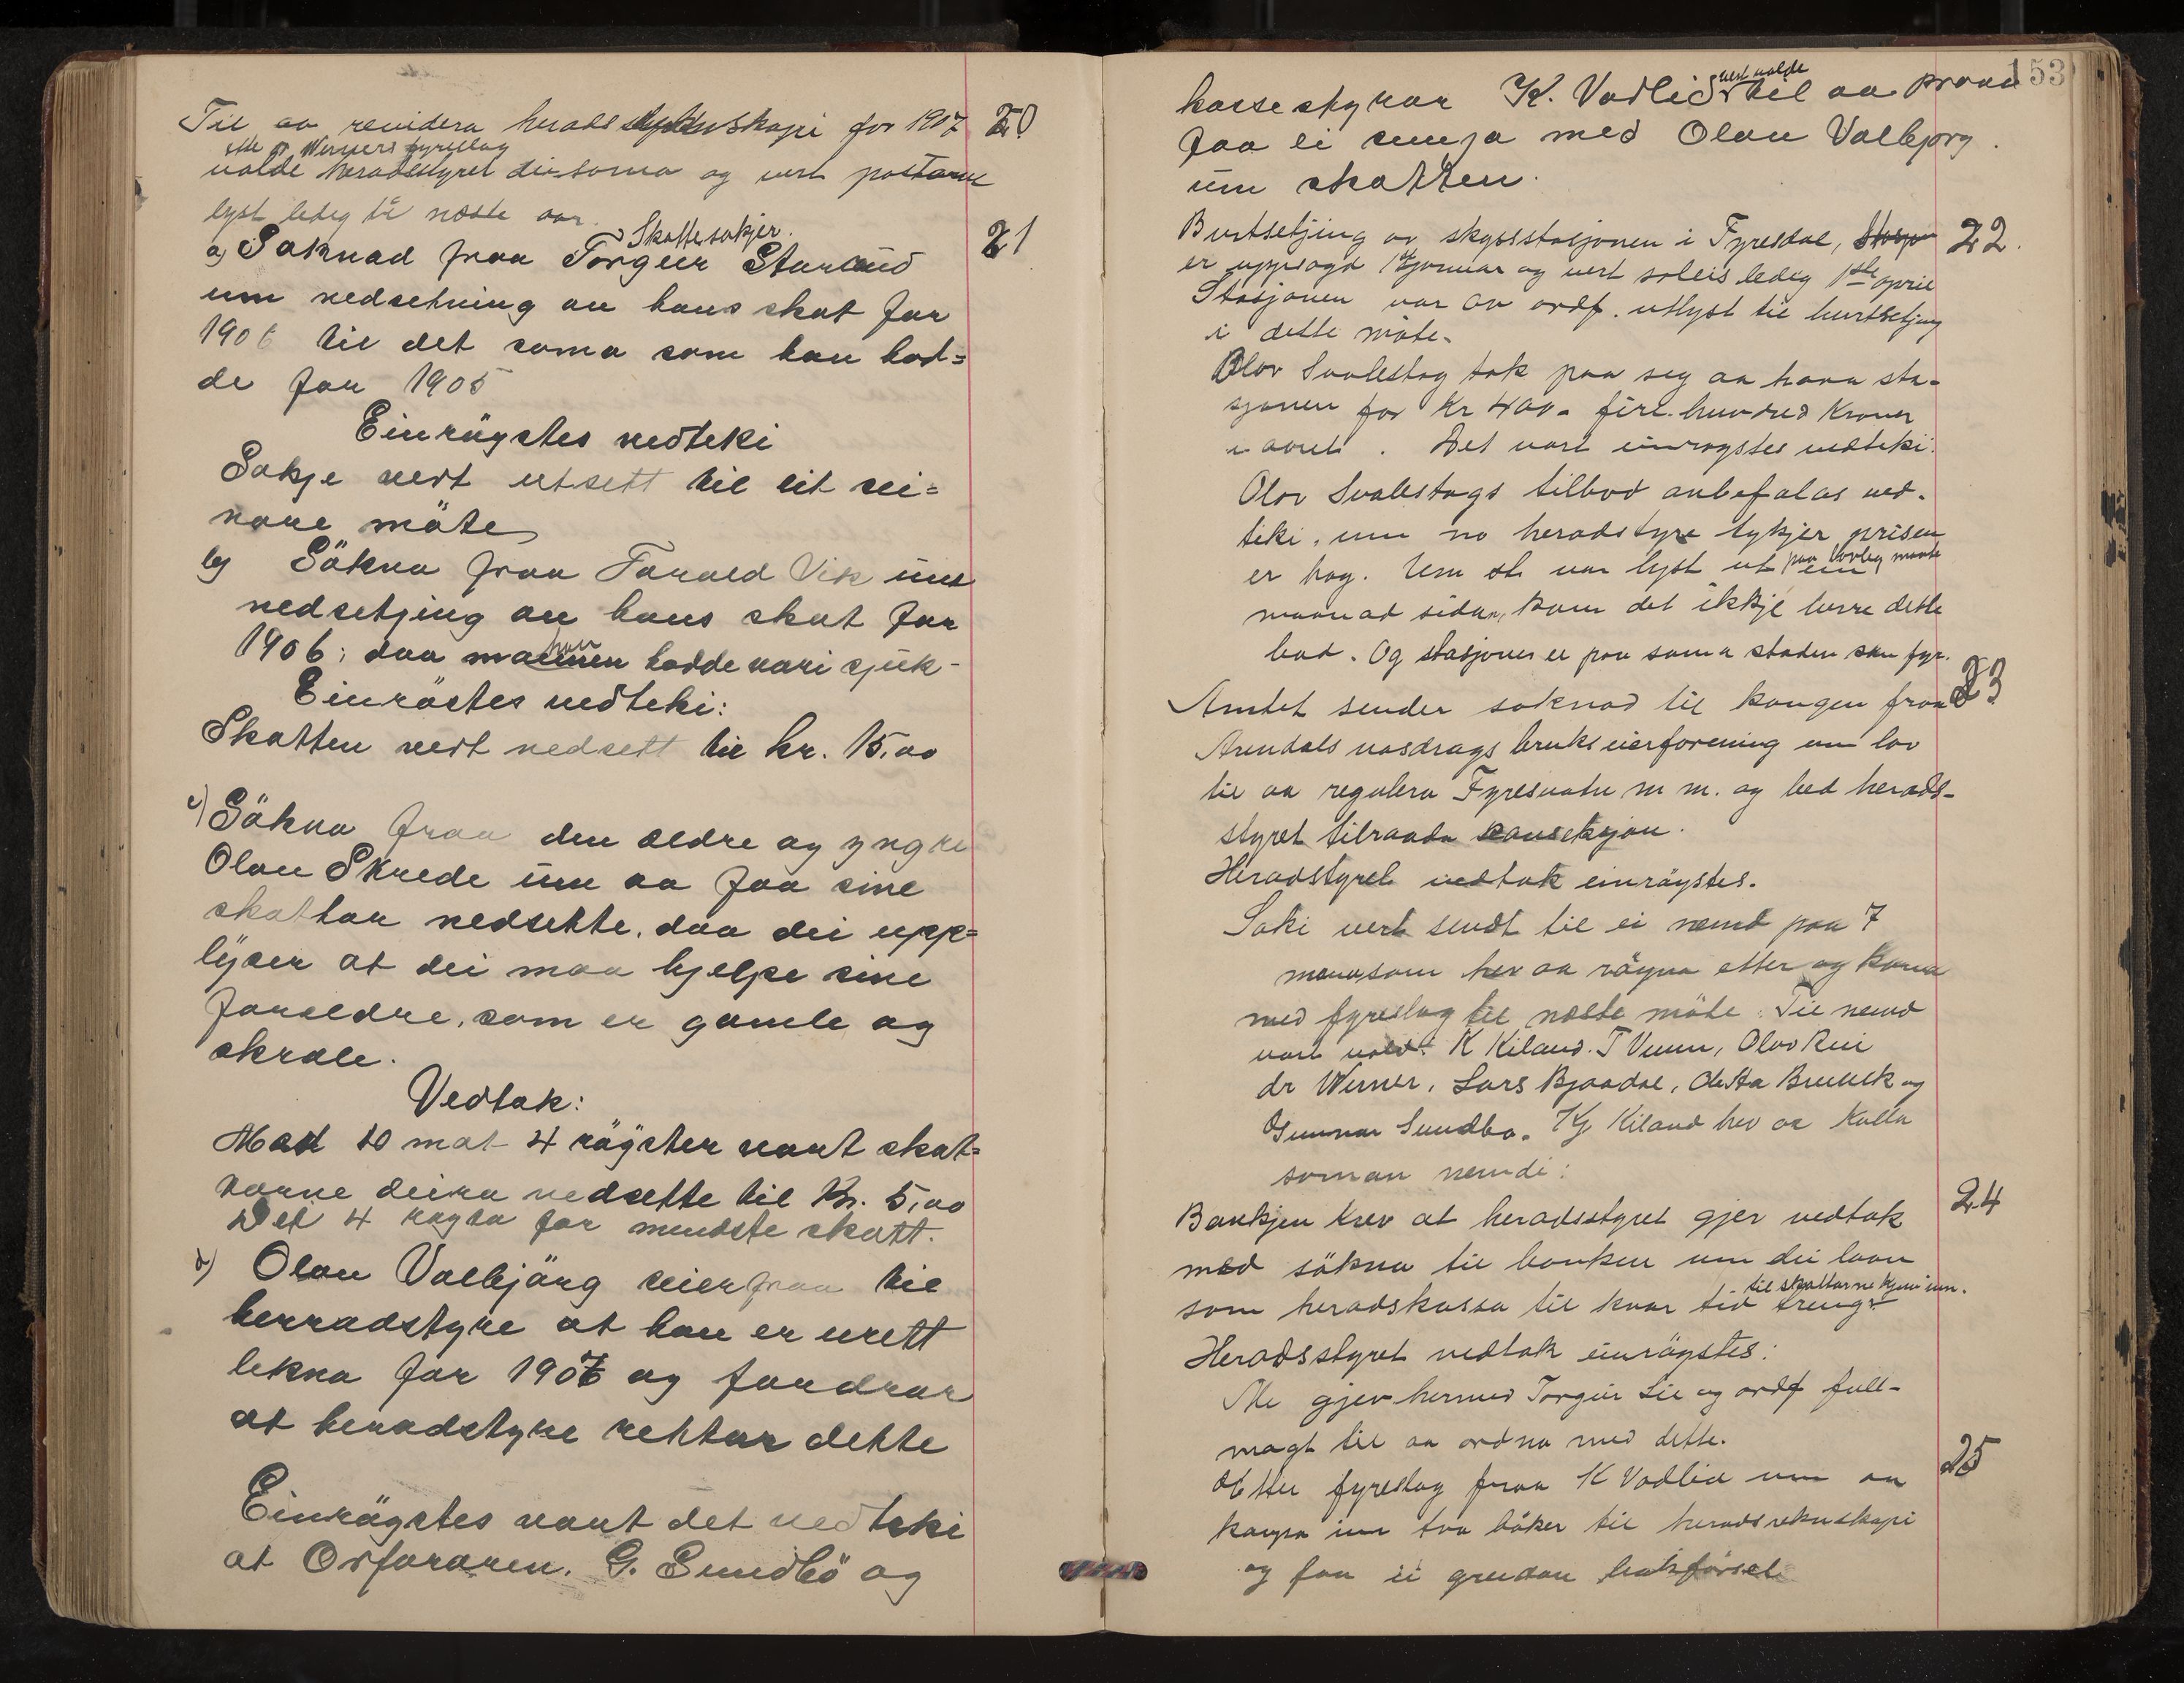 Til aa revidera herads rekneskapi for 1907 20
ette dr Werners fyreslag
valde heradstyret dei soma og vert postane
lyst ledig til næste aar.
Skattesakjer.
a) Søknad fraa Torgeir 21
um nedsetning av hans skat for
1906 til det soma som han had=
de for 1905
Einrøystes vedteki
Sakje vert utsett til eit sei=
nare møte
b) Søkna fraa Tarald Vik um
nedsetjing av hans skat for
1906; daa mannen hadde vori sjuk-
Einrøstes vedteki:
Skatten vert nedsett til kr. 15,00
c) Søkna fraa den ældre og yngre
Olav Skrede um aa faa sine
skattar nedsette, daa dei upp=
lyser at dei maa hjelpe sine
foreldre, som er gamle og
skrale.
Vedtak:
Mad 10 mot 4 røyster vart skat=
tarne deira nedsette til Kr. 5,00
Dei 4 røysta for mindste skatt.
d) Olav Valbjørg seier fraa til
herradstyre at han er urett
likna for 1907 og fordrar
at heradstyre rettar dette
Einrøystes vart det vedteki
at Orforaren, G. Sundbø og
153
kassestyrar K. Vadlid vert valde til aa prøva
faa ei semja med Olav Valbjørg
um skatten.
Burtsetjing av skysstasjonen i Fyresdal, 22.
er uppsagd 1ste januar og vert soleis ledig 1ste april
Stasjonen var av ordf. utlyst til burtsetjing
i dette møte.
Olav Svalestog tok paa seg aa hava sta-
sjonen for Kr 400- fire hundred Kroner
i aaret. Det vart einrøystes vedteki:
Olav Svalestogs tilbod anbefalas ved-
teki, um no heradstyre tykjer prisen
er høg. Um st. var lyst ut paa lovleg maate ein
maanad sidan, kom det ikkje berre dette
bod. Og stasjonen er paa sama staden som fyr.
Amtet sender søknad til kongen fraa 23
Arendals vasdrags brukseierforening um lov
til aa regulera Fyresvatn m m. og bed herads-
styret tilraada konsesjon.
Heradstyret vedtok einrøystes.
Saki vert sendt til ei nemd paa 7
mann som hev aa røyna etter og koma
med fyreslag til næste møte. Til nemd
vart vald: K Kiland. T Veum, Olav Rui
dr Werner, Lars Bjaadal, Brunek og
Gunnar Sundbø. Kj Kiland hev aa kalla
soman nemdi:
Bankjen krev at heradsstyret gjer vedtak 24
med søkna til banken um dei laan
som heradskassa til kvar tid treng til skattarne kjem inn.
Heradsstyret vedtok einrøystes:
Me gjev hermed Torgeir Lie og ordf full-
magt til aa ordna med dette.
Etter fyreslag fraa K Vadlid um aa 25
kaupa inn tva bøker til heradsrekneskapi
og faa ei greidare bokførsel